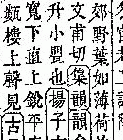 郊野葉如薄荷
文甫切集韻韻
升小甖也揚子
寬下直上銳平
甎樓上聲見古